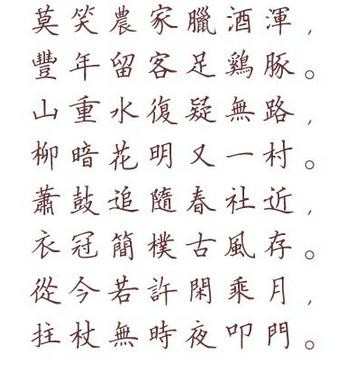 莫笑農家臘酒渾，
豐年留客足鷄豚。
山重水復疑無路，
柳暗花明又一村。
蕭鼓追隨春社近，
衣冠簡樸古風存。
從今若許閑乘月，
拄杖無時夜叩門。